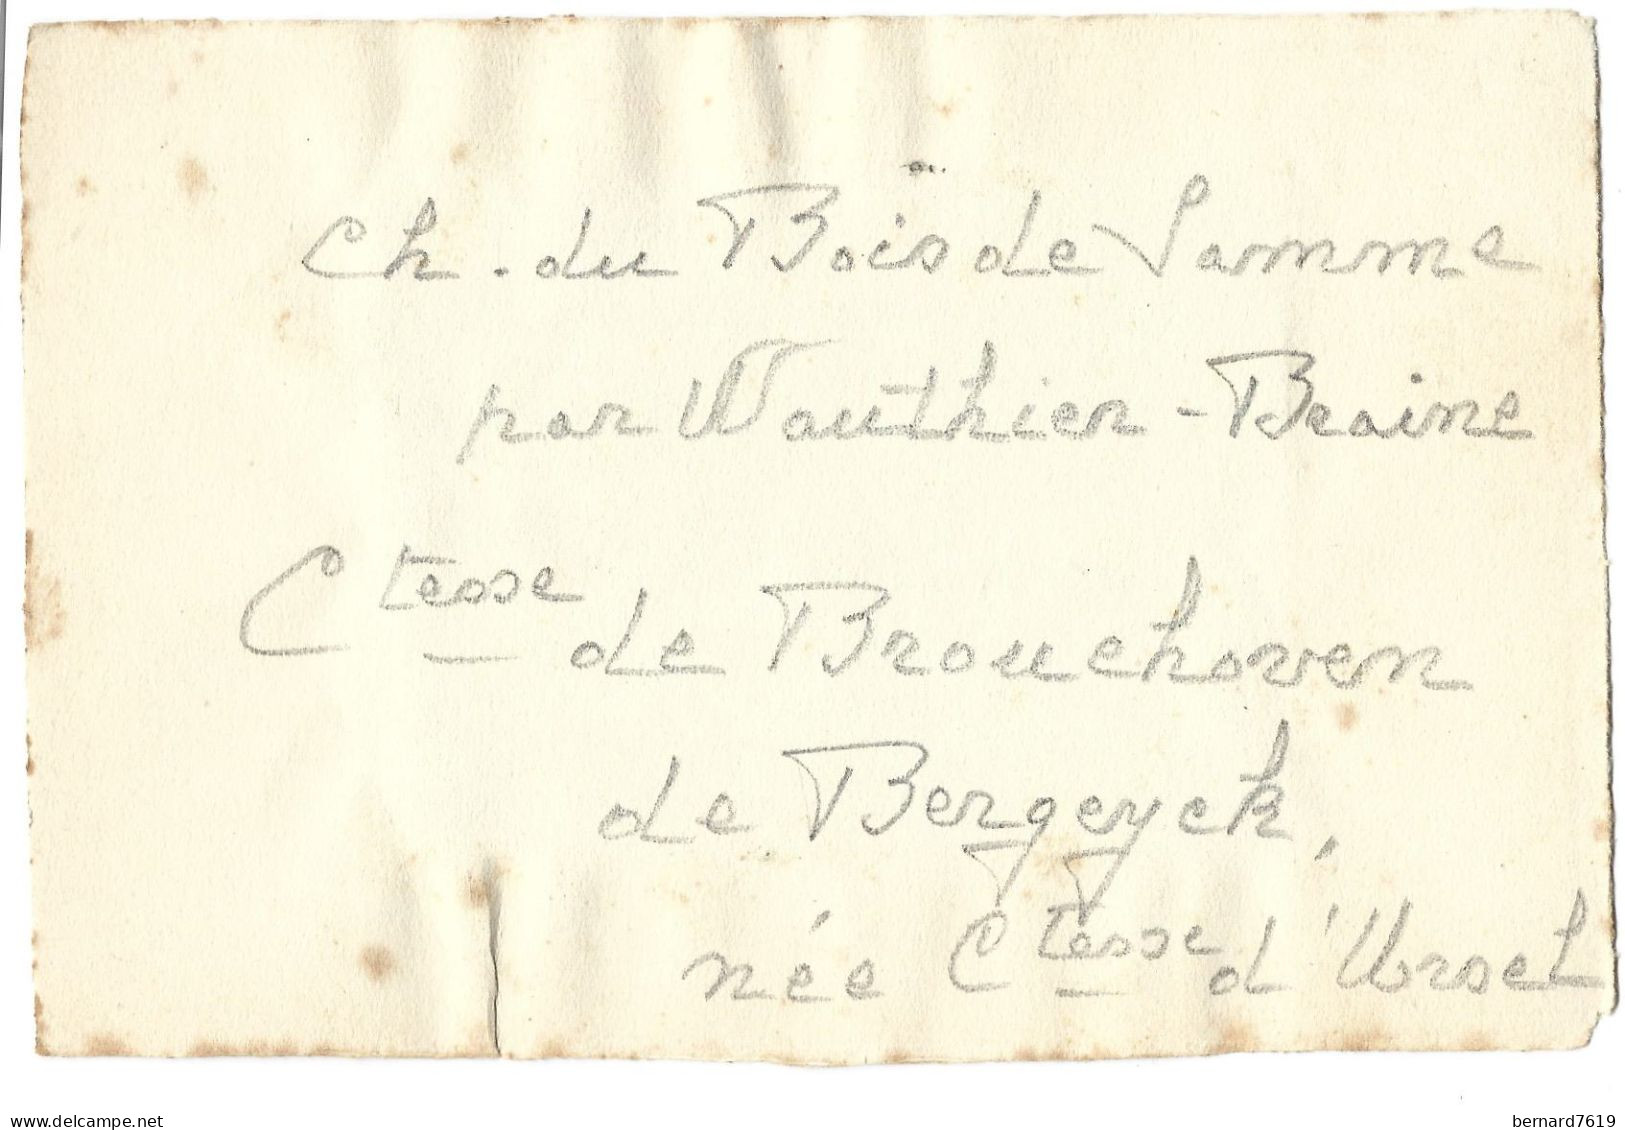 Ch. du Bois de Samme
par Wauthier-Braine
Ctesse de Brouchoven
de Bergeyck,
née Ctesse d'Ursel
delcampe.net
bernard7619